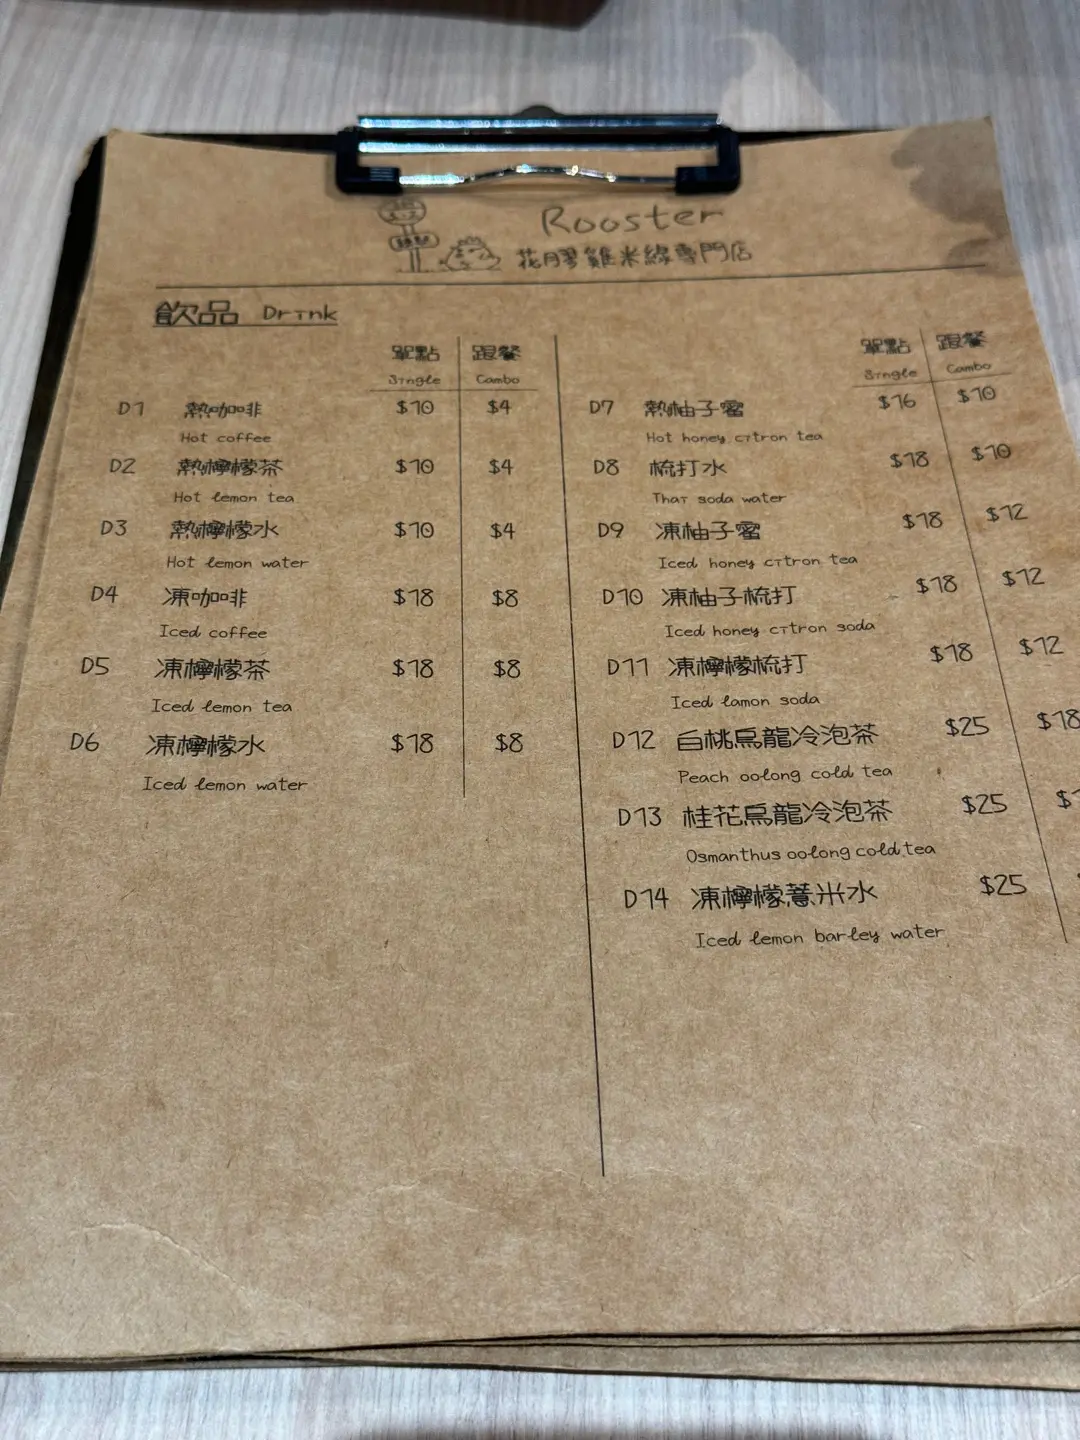 Rooster
花膠雞米線專門店
飲品 Drink
單點 跟餐
Single Combo
D1 熱咖啡 $10 $4
Hot coffee
D2 熱檸檬茶 $10 $4
Hot lemon tea
D3 熱檸檬水 $10 $4
Hot lemon water
D4 凍咖啡 $18 $8
Iced coffee
D5 凍檸檬茶 $18 $8
Iced lemon tea
D6 凍檸檬水 $18 $8
Iced lemon water
單點 跟餐
Single Combo
D7 熱柚子蜜 $16 $10
Hot honey citron tea
D8 梳打水 $18 $10
Thai soda water
D9 凍柚子蜜 $18 $12
Iced honey citron tea
D10 凍柚子梳打 $18 $12
Iced honey citron soda
D11 凍檸檬梳打 $18 $12
Iced lamon soda
D12 白桃烏龍冷泡茶 $25 $18
Peach oolong cold tea
D13 桂花烏龍冷泡茶 $25
Osmanthus oolong cold tea
D14 凍檸檬薏米水 $25
Iced lemon barley water